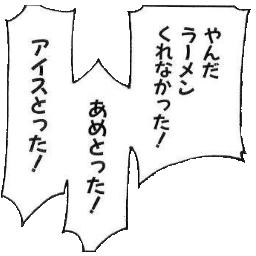 やんだ
ラーメン
くれなかった！
あめとった！
アイスとった！